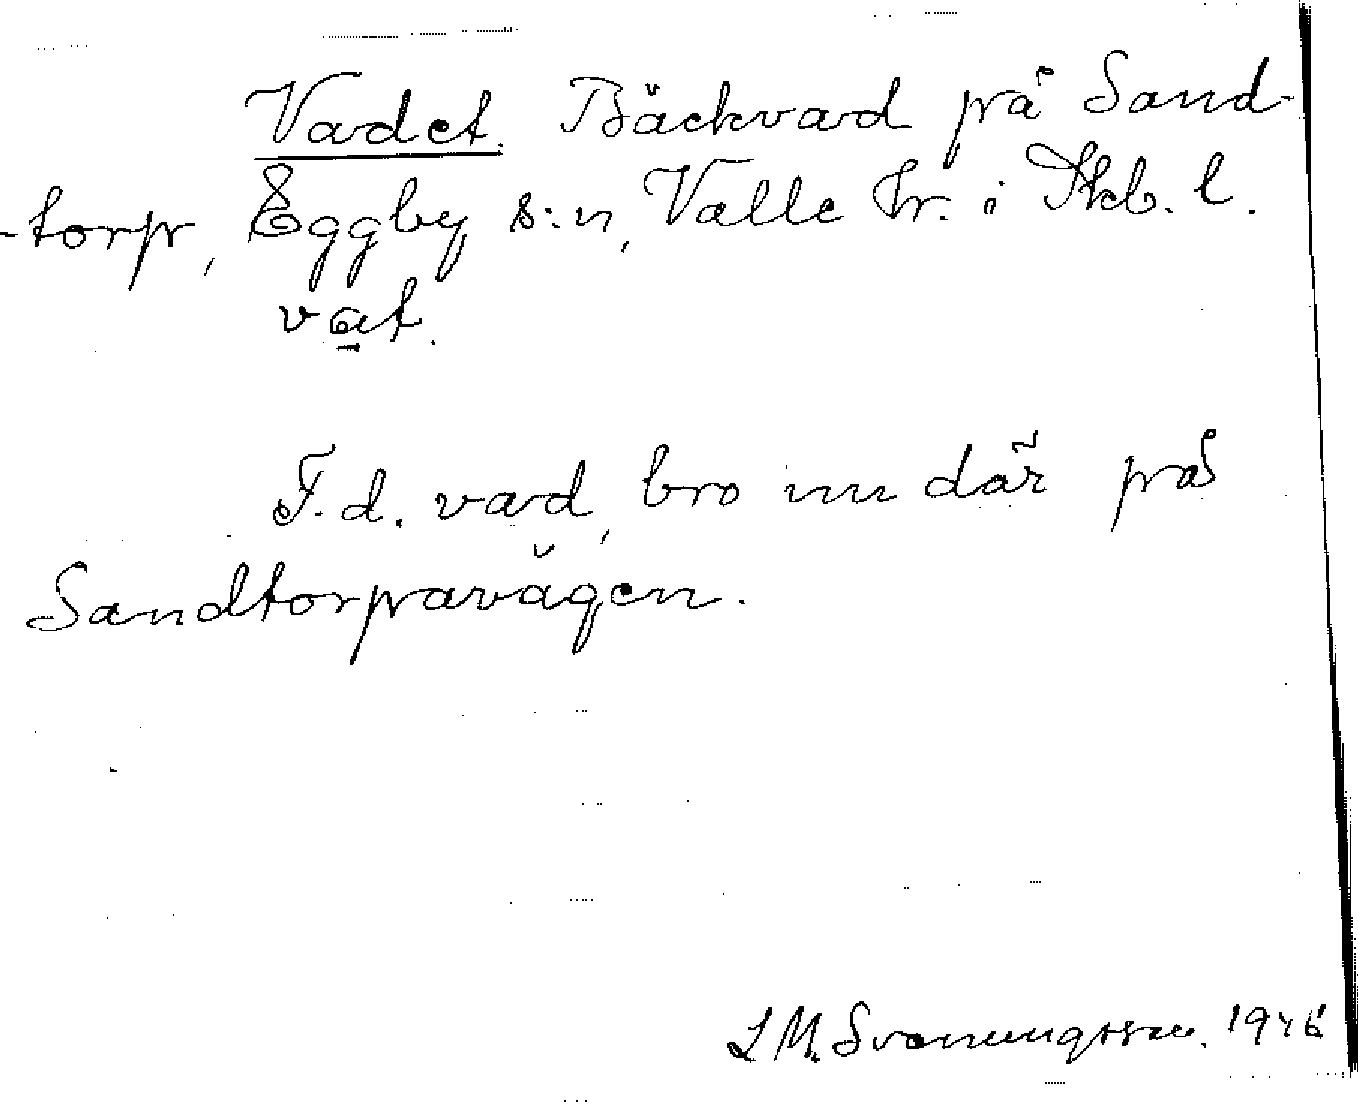 Vadet. Bäckvad på Sand-
-torp, Eggby s:n, Valle hr. i Skb. l.
vat.
F.d. vad, bro nu där på
Sandtorpavägen.
L M. Svanungsson. 1946